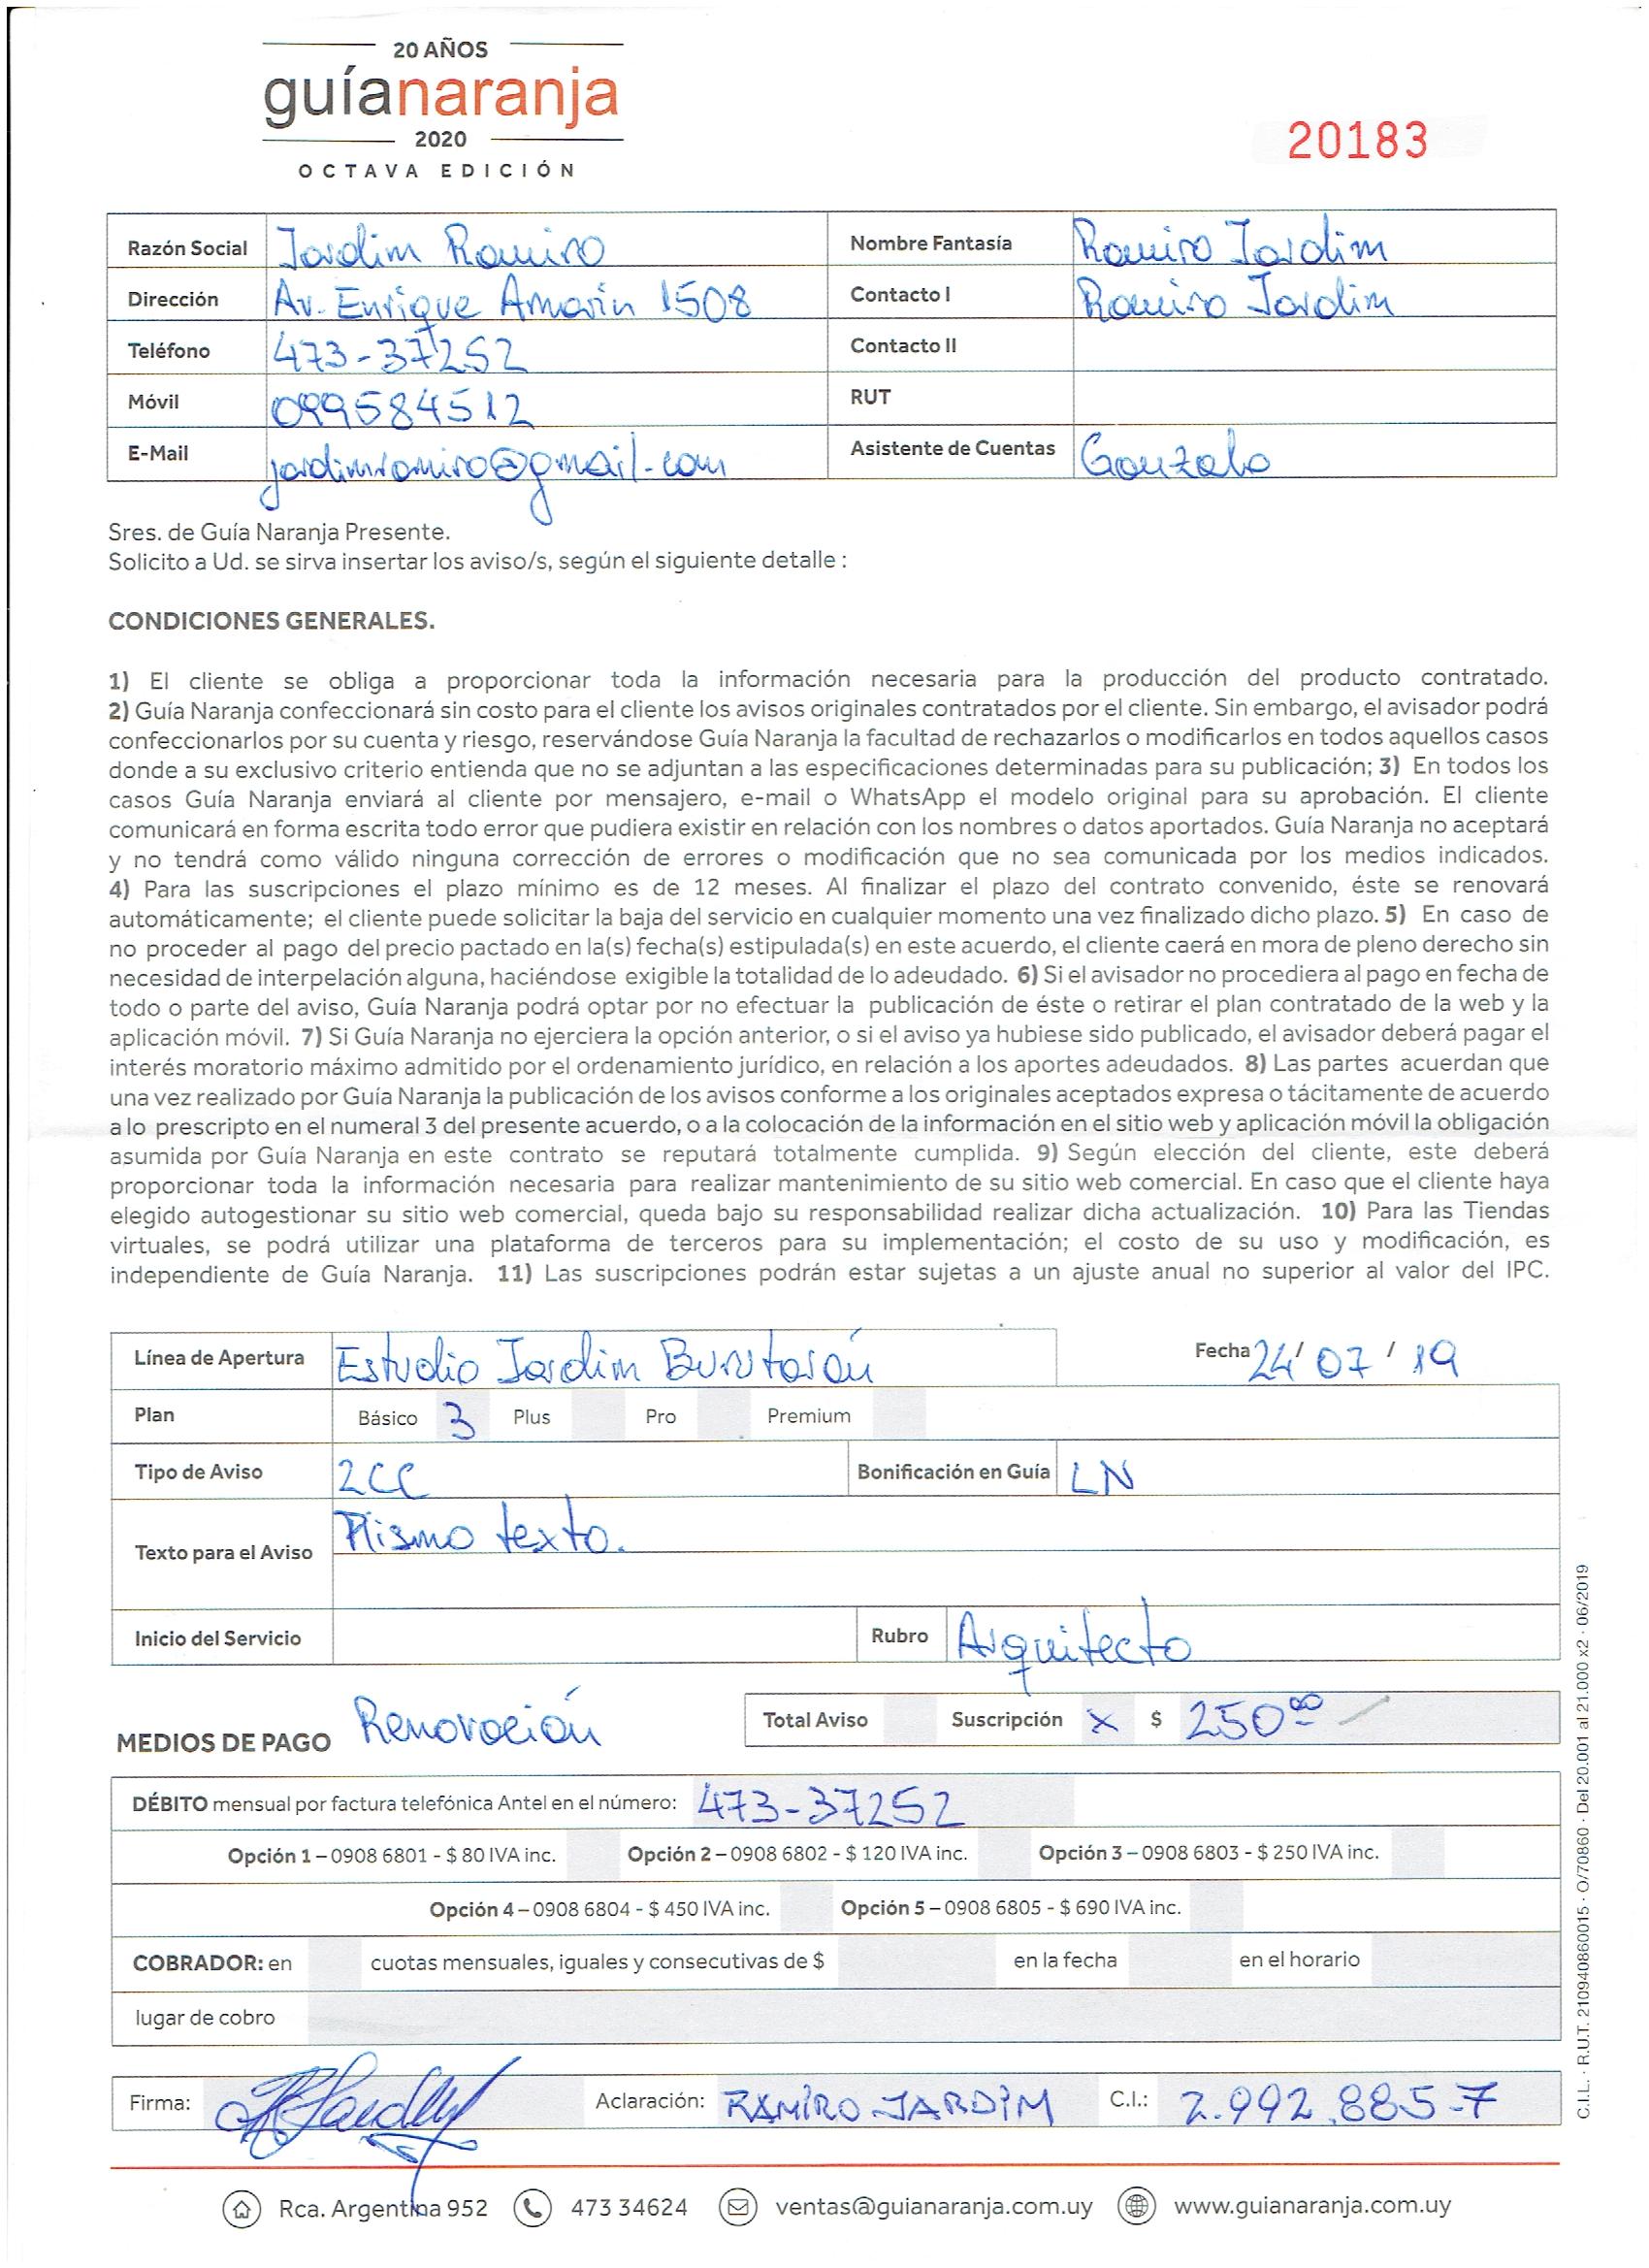 20 AÑOS
guíanaranja
2020
OCTAVA EDICIÓN
20183
Razón Social Jardim Ramiro Nombre Fantasía Ramiro Jardim
Dirección Av. Enrique Amorin 1508 Contacto I Ramiro Jardim
Teléfono 473-37252 Contacto II
Móvil 099584512 RUT
E-Mail jardimramiro@gmail.com Asistente de Cuentas Gonzalo
Sres. de Guía Naranja Presente.
Solicito a Ud. se sirva insertar los aviso/s, según el siguiente detalle :
CONDICIONES GENERALES.
1) El cliente se obliga a proporcionar toda la información necesaria para la producción del producto contratado.
2) Guía Naranja confeccionará sin costo para el cliente los avisos originales contratados por el cliente. Sin embargo, el avisador podrá
confeccionarlos por su cuenta y riesgo, reservándose Guía Naranja la facultad de rechazarlos o modificarlos en todos aquellos casos
donde a su exclusivo criterio entienda que no se adjuntan a las especificaciones determinadas para su publicación; 3) En todos los
casos Guía Naranja enviará al cliente por mensajero, e-mail o WhatsApp el modelo original para su aprobación. El cliente
comunicará en forma escrita todo error que pudiera existir en relación con los nombres o datos aportados. Guía Naranja no aceptará
y no tendrá como válido ninguna corrección de errores o modificación que no sea comunicada por los medios indicados.
4) Para las suscripciones el plazo mínimo es de 12 meses. Al finalizar el plazo del contrato convenido, éste se renovará
automáticamente; el cliente puede solicitar la baja del servicio en cualquier momento una vez finalizado dicho plazo. 5) En caso de
no proceder al pago del precio pactado en la(s) fecha(s) estipulada(s) en este acuerdo, el cliente caerá en mora de pleno derecho sin
necesidad de interpelación alguna, haciéndose exigible la totalidad de lo adeudado. 6) Si el avisador no procediera al pago en fecha de
todo o parte del aviso, Guía Naranja podrá optar por no efectuar la publicación de éste o retirar el plan contratado de la web y la
aplicación móvil. 7) Si Guía Naranja no ejerciera la opción anterior, o si el aviso ya hubiese sido publicado, el avisador deberá pagar el
interés moratorio máximo admitido por el ordenamiento jurídico, en relación a los aportes adeudados. 8) Las partes acuerdan que
una vez realizado por Guía Naranja la publicación de los avisos conforme a los originales aceptados expresa o tácitamente de acuerdo
a lo prescripto en el numeral 3 del presente acuerdo, o a la colocación de la información en el sitio web y aplicación móvil la obligación
asumida por Guía Naranja en este contrato se reputará totalmente cumplida. 9) Según elección del cliente, este deberá
proporcionar toda la información necesaria para realizar mantenimiento de su sitio web comercial. En caso que el cliente haya
elegido autogestionar su sitio web comercial, queda bajo su responsabilidad realizar dicha actualización. 10) Para las Tiendas
virtuales, se podrá utilizar una plataforma de terceros para su implementación; el costo de su uso y modificación, es
independiente de Guía Naranja. 11) Las suscripciones podrán estar sujetas a un ajuste anual no superior al valor del IPC.
Línea de Apertura Estudio Jardim Burutarán Fecha 24/ 07 / 19
Plan Básico 3 Plus Pro Premium
Tipo de Aviso 2CC Bonificación en Guía LN
Texto para el Aviso Mismo texto.
Inicio del Servicio Rubro Arquitecto
MEDIOS DE PAGO Renovación Total Aviso Suscripción x $ 250 00
DÉBITO mensual por factura telefónica Antel en el número: 473-37252
Opción 1 – 0908 6801 - $ 80 IVA inc. Opción 2 – 0908 6802 - $ 120 IVA inc. Opción 3 – 0908 6803 - $ 250 IVA inc.
Opción 4 – 0908 6804 - $ 450 IVA inc. Opción 5 – 0908 6805 - $ 690 IVA inc.
COBRADOR: en cuotas mensuales, iguales y consecutivas de $ en la fecha en el horario
lugar de cobro
Firma: Aclaración: RAMIRO JARDIM C.I.: 2.992.885-7
Rca. Argentina 952 473 34624 ventas@guianaranja.com.uy www.guianaranja.com.uy
C.I.L. · R.U.T. 210940860015 · O/70860 · Del 20.001 al 21.000 x2 · 06/2019